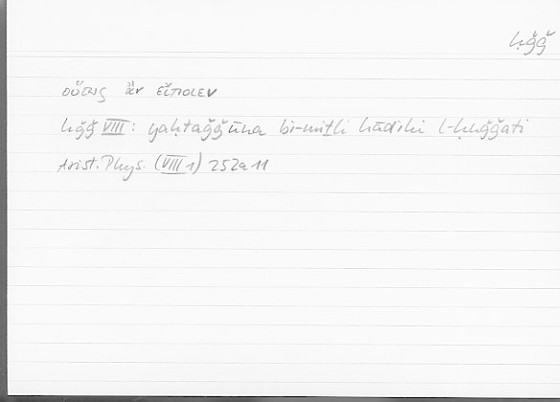 ḥǧǧ
οὕτως ἂν εἴποιεν
ḥǧǧ VIII: yaḥtaǧǧūna bi-miṯli hāḏihi l-ḥuǧǧati
Arist. Phys. (VIII 1) 252a11